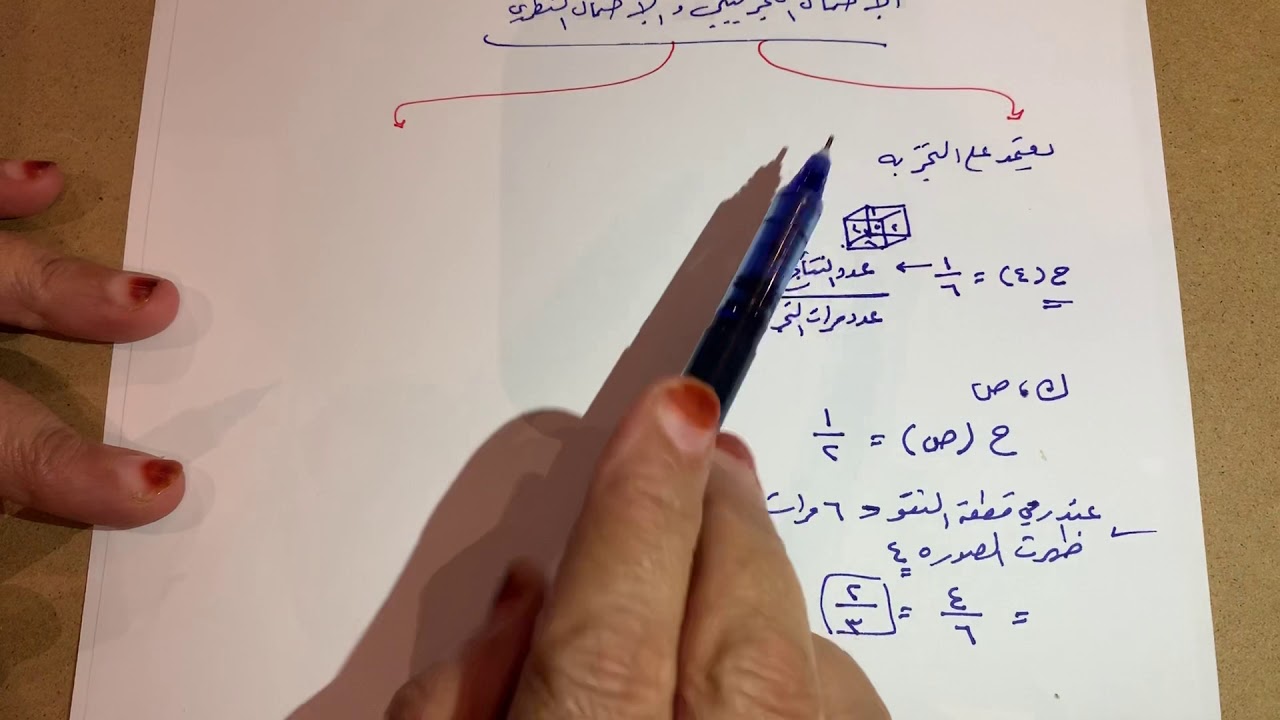 الاحتمال التجريبي والاحتمال النظري
يعتمد على التجربه
ح (٤) = ١/٦ ← عدد النتائج
عدد مرات
ك ، ص
ح (ص) = ١/٢
عند رمي قطعة النقود ٦ مرات
ظهرت الصوره ٤
= ٤/٦ = ٢/٣